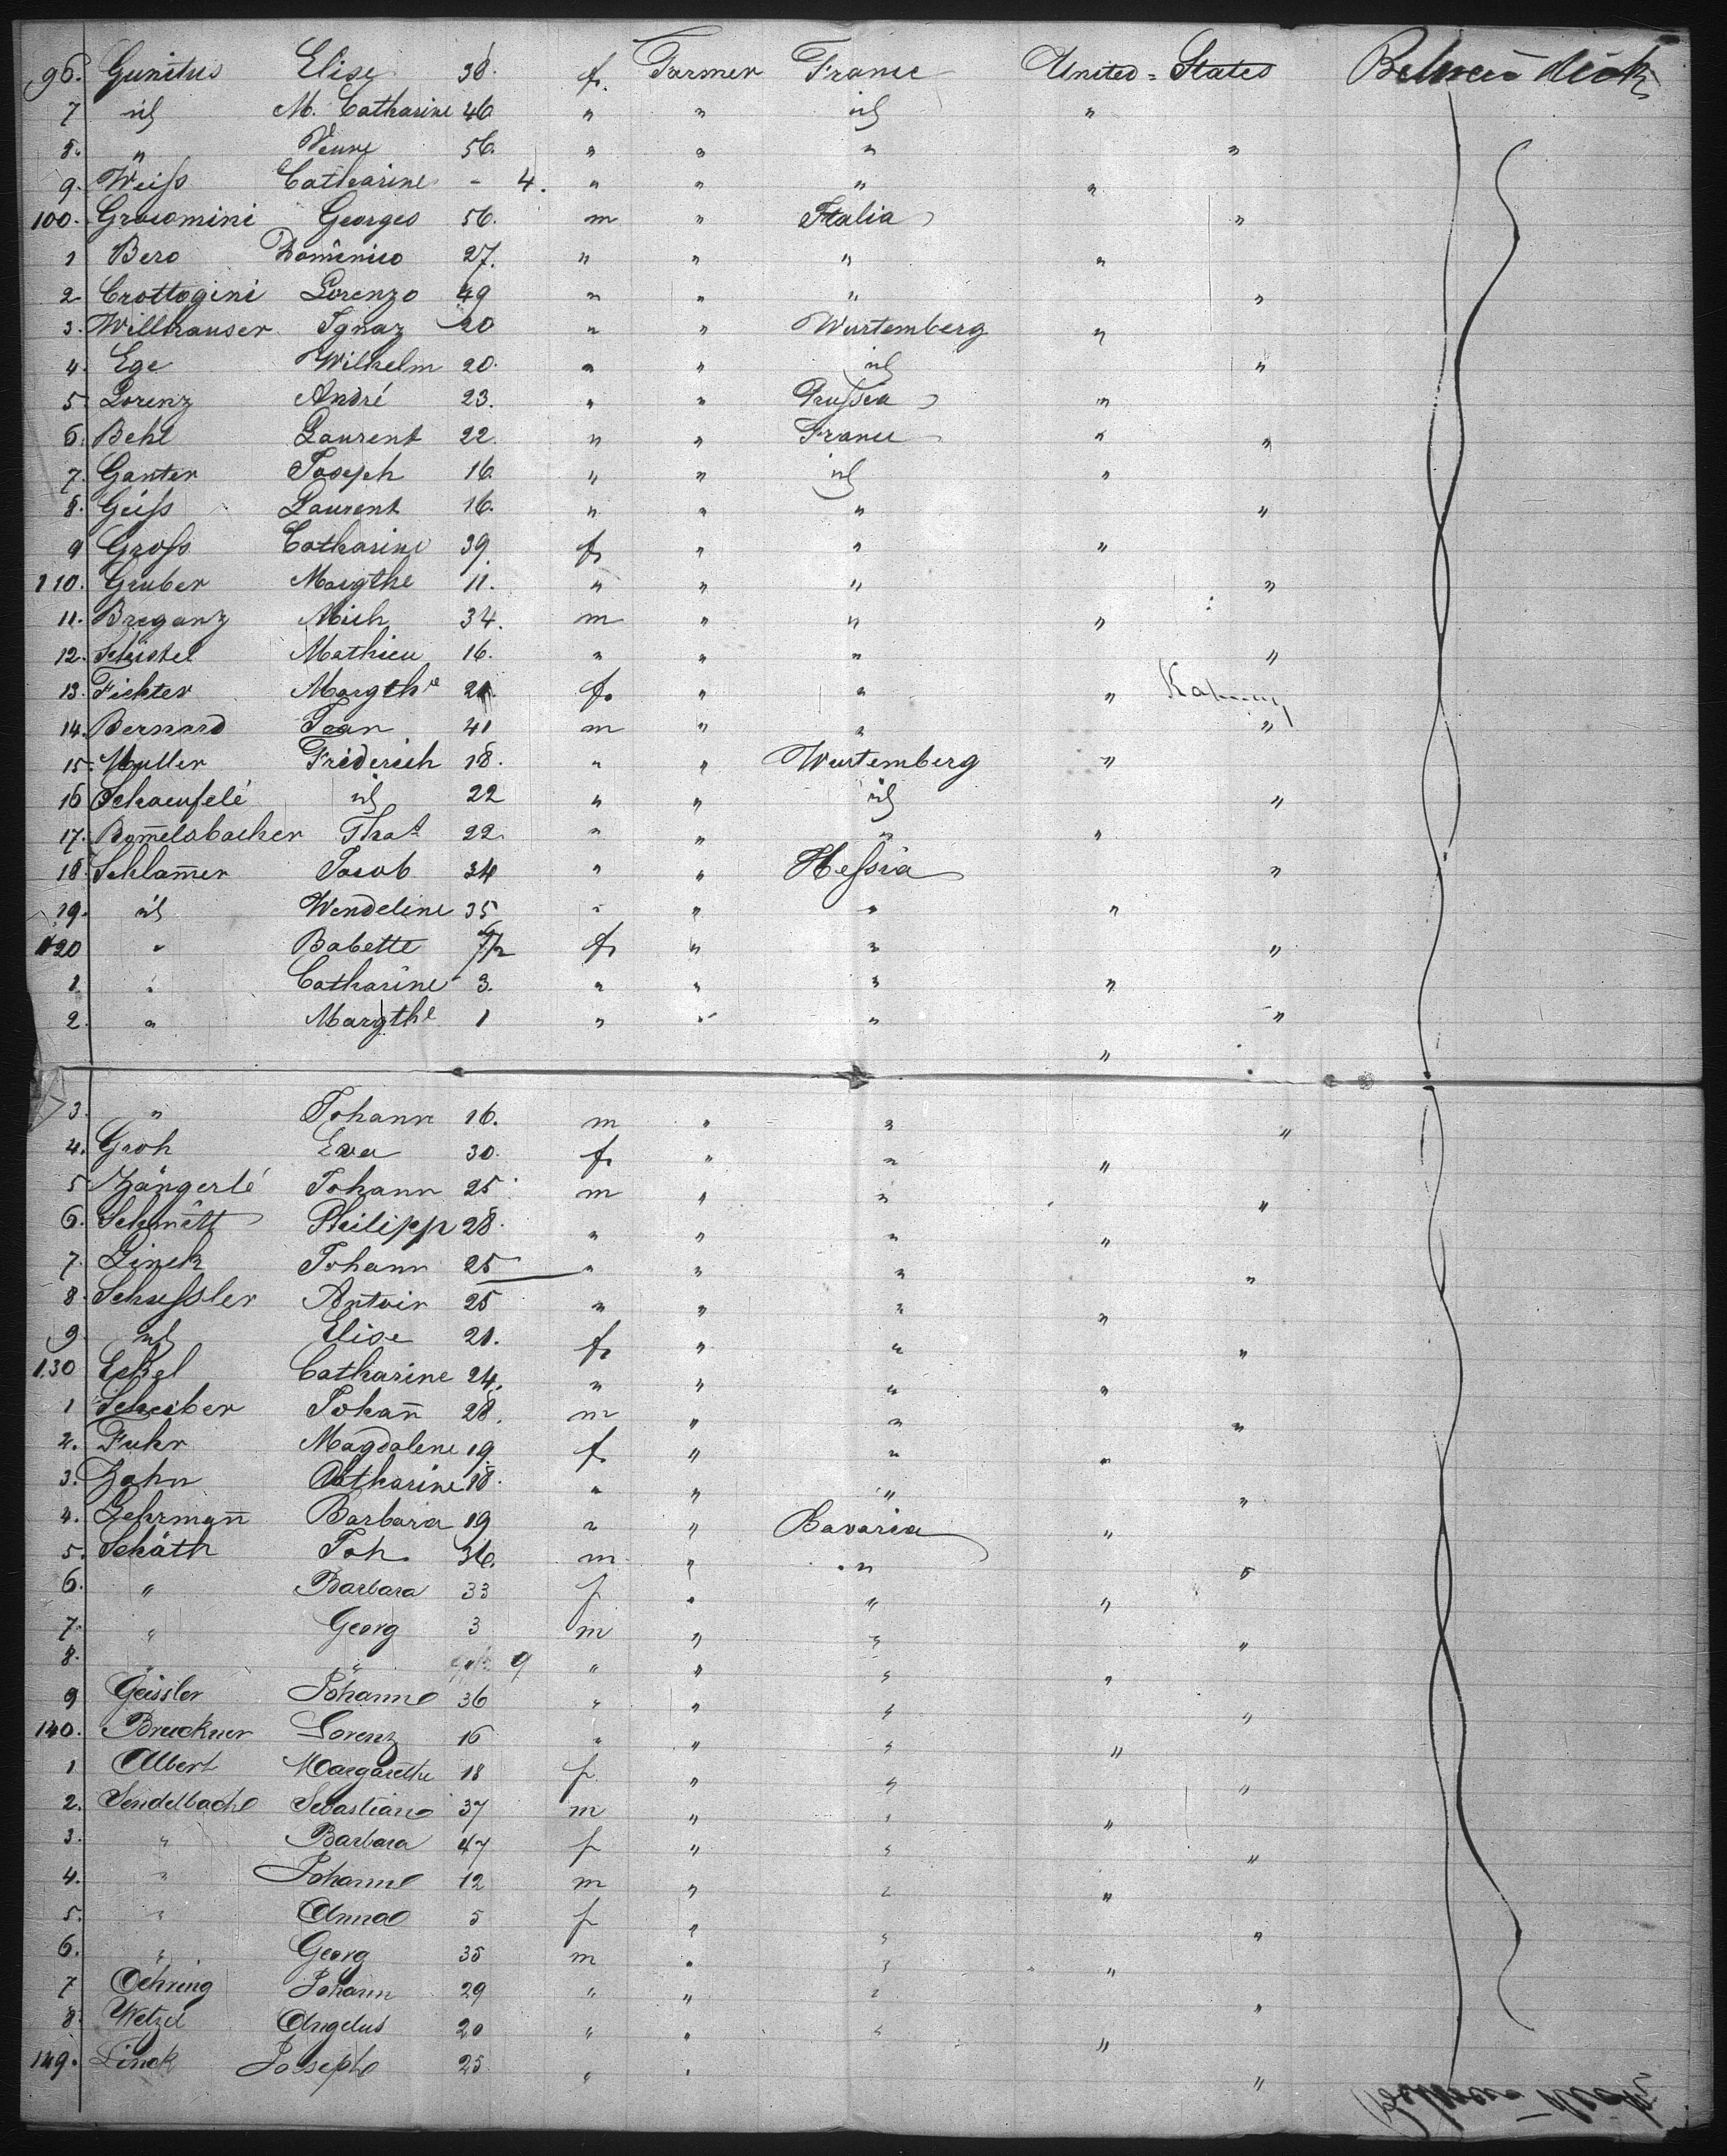 96. Gunitus Elise 38. f. Farmer France United-States Between deck
7 id M. Catharine 46 " " id "
8. " Veuve 56. " " " "
9. Weiss Catharine - 4. " " " "
100. Gracomini Georges 56. m " Italia "
1 Bero Domenico 27. " " " "
2 Crottogini Lorenzo 49 " " " "
3. Willhauser Ignaz 20 " " Wurtemberg "
4. Ege Wilhelm 20. " " id "
5 Lorenz André 23. " " Prussia "
6. Behl Laurent 22 " " France "
7. Ganter Joseph 16 " " id "
8. Geiss Laurent 16. " " " "
9 Gross Catharine 39 f. " " "
110. Gruber Margthe 11. " " " "
11. Breganz Mich 34. m " " "
12. Mathieu 16. " " " "
13. Fichter Margthe 21 f. " " "
14. Bernard Jean 41 m " " "
15. Muller Friderich 18. " " Wurtemberg "
16 Schaeufelé id 22 " " id "
17. Bom̄elsbacher 22. " " " "
18 Schlam̄er Jacob 34 " " Hessia "
19. id Wendeline 35 " " " "
120 " Babette f. " " "
1. " Catharine 3. " " " "
2. " Margthe 1 " " " "
"
3. " Johann 16. m " " "
4. Groh Eva 30. f. " " "
5 Zängerlé Johann 25 m " " "
6. Schmitt Philipp 28. " " " "
7. Linck Johann 25 " " " "
8. Schussler Antoin 25 " " " "
9. id Elise 21. f. " " "
130 Eckel Catharine 24. " " " "
1 Scheiber Johan̄ 28. m " " "
2. Fuhr Magdalene 19 f. " " "
3. Zahn Catharine 18. " " " "
4. Gehrman̄ Barbara 19 " " Bavaria "
5. Schäth Joh. 36. m " " "
6. " Barbara 33 f " " "
7. " Georg 3 m " " "
8. " " 9 " " " "
9 Geissler Johann 36 " " " "
140. Bruckner Lorenz 16 " " " "
1 Albert Margarethe 18 f. " " "
2. Sendelbach Sebastian 37 m " " "
3. " Barbara 47 f " " "
4. " Johann 12 m " " "
5. " Anna 5 f " " "
6. " Georg 35 m " " "
7 Oehring Johann 29 " " " "
8. Wetzel Angelus 20 " " " "
149. Linck Josseph 25 " " "